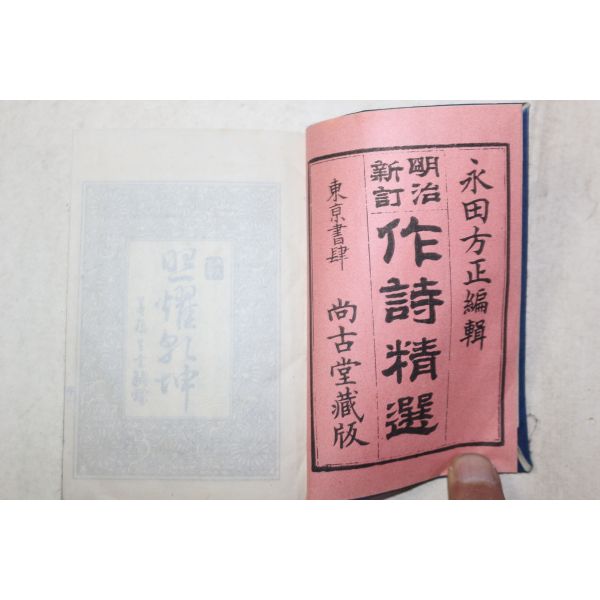 永田方正編輯
明治
新訂
作詩精選
東京書肆
尚古堂藏版
照耀乾坤